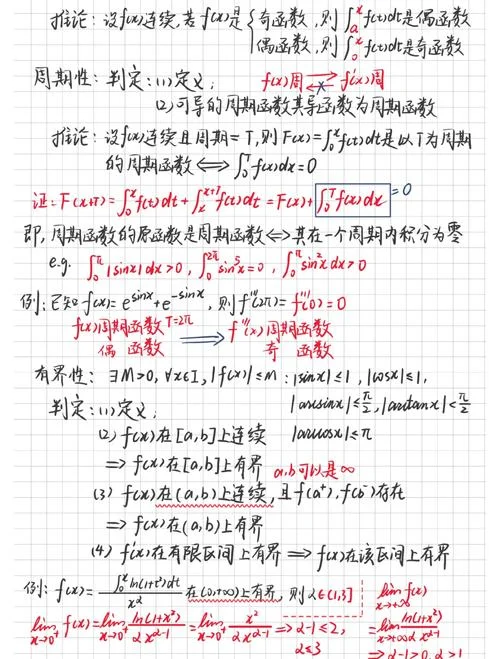 推论：设f(x)连续，若f(x)是{奇函数，则∫ₐˣf(t)dt是偶函数
偶函数，则∫₀ˣf(t)dt是奇函数
周期性：判定：(1)定义； f(x)周 ⇄ f'(x)周
(2)可导的周期函数其导函数为周期函数
推论：设f(x)连续且周期=T，则F(x)=∫₀ˣf(t)dt是以T为周期
的周期函数⟺∫₀ᵀf(x)dx=0
证：F(x+T)=∫₀ˣf(t)dt+∫ₓˣ⁺ᵀf(t)dt=F(x)+∫₀ᵀf(x)dx =0
即，周期函数的原函数是周期函数⟺其在一个周期内积分为零
e.g. ∫₀^π|sinx|dx>0，∫₀^{2π}sin⁵x=0，∫₀^πsin²x dx>0
例：已知f(x)=e^{sinx}+e^{-sinx}，则f'''(2π)=f'''(0)=0
f(x)周期函数 T=2π ⟹ f'''(x)周期函数
偶 函数 奇 函数
有界性：∃M>0，∀x∈I，|f(x)|≤M：|sinx|≤1，|cosx|≤1，
判定：(1)定义； |arcsinx|≤π/2，|arctanx|<π/2
(2) f(x)在[a,b]上连续 |arccosx|≤π
⇒f(x)在[a,b]上有界 a,b可以是∞
(3) f(x)在(a,b)上连续，且f(a⁺)，f(b⁻)存在
⇒f(x)在(a,b)上有界
(4) f'(x)在有限区间上有界⟹f(x)在该区间上有界
例：f(x)=∫₀ˣln(1+t²)dt/x^α 在(0,+∞)上有界，则α∈(1,3] lim_{x→+∞}f(x)
lim_{x→0⁺}f(x)=lim_{x→0⁺}ln(1+x²)/αx^{α-1}=lim_{x→0⁺}x²/αx^{α-1}⇒α-1≤2， =lim_{x→+∞}ln(1+x²)/αx^{α-1}
α≤3 ⇒α-1>0，α>1